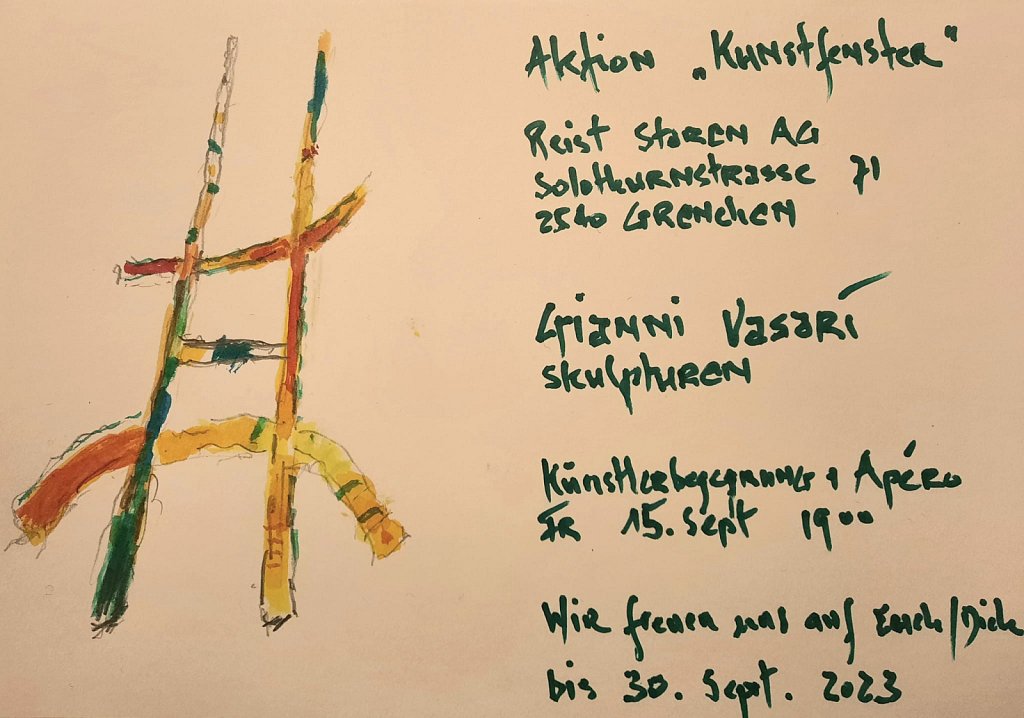 Aktion „Kunstfenster"
Reist Storen AG
Solothurnstrasse 71
2540 Grenchen
Gianni Vasari
Skulpturen
Künstlerbegegnung + Apéro
FR 15. Sept 19⁰⁰
Wir freuen uns auf Euch/Dich
bis 30. Sept. 2023